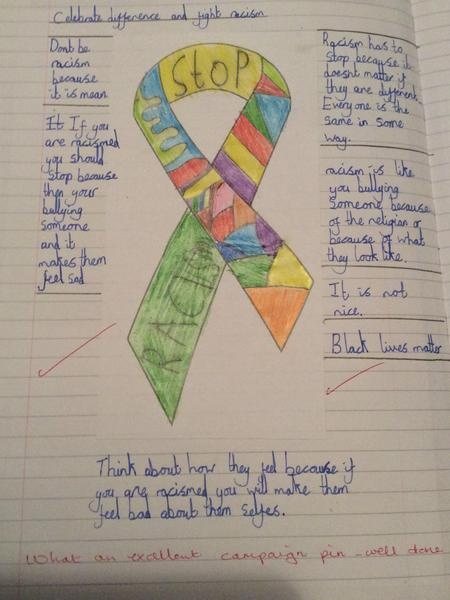 Celebrate difference and fight racism
Dont be
racism
because
it is mean
It If you
are racismed
you should
stop because
then your
bullying
someone
and it
makes them
feel sad
STOP
RACISM
Racism has to
stop because it
doesnt matter if
they are different.
Everyone is the
same in some
way.
racism is like
you bullying
someone because
of the religian or
because of what
they look like.
It is not
nice.
Black lives matter
Think about how they feel because if
you are racismed you will make them
feel bad about them selfes.
What an excellent campaign pin - well done